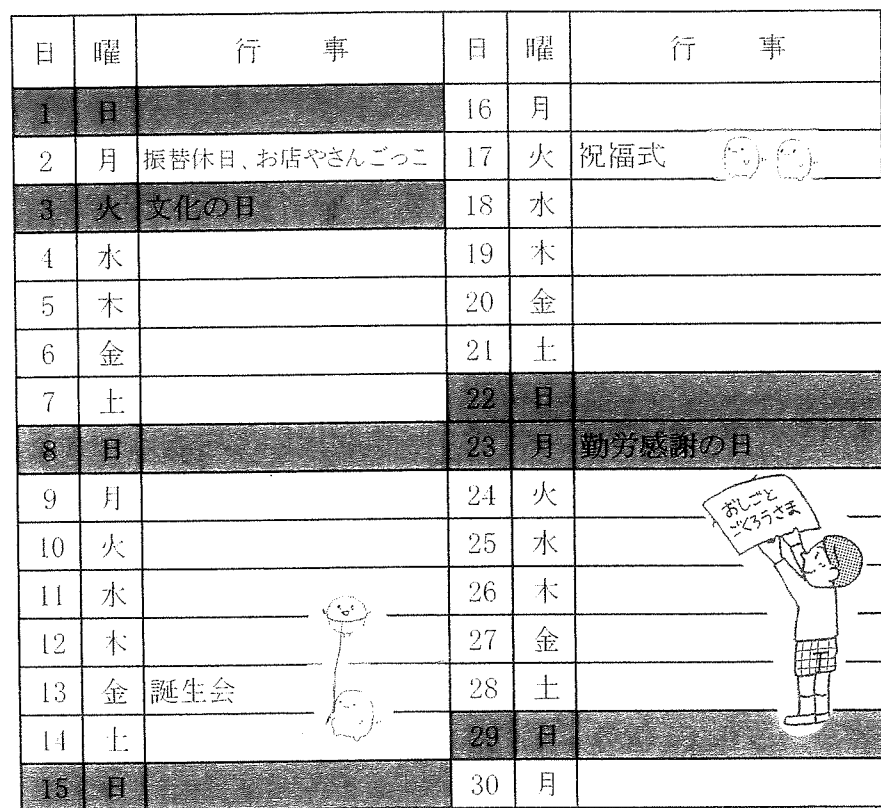 日 曜 行 事
1 日
2 月 振替休日、お店やさんごっこ
3 火 文化の日
4 水
5 木
6 金
7 土
8 日
9 月
10 火
11 水
12 木
13 金 誕生会
14 土
15 日
日 曜 行 事
16 月
17 火 祝福式
18 水
19 木
20 金
21 土
22 日
23 月 勤労感謝の日
24 火
25 水
26 木
27 金
28 土
29 日
30 月
おしごと
ごくろうさま